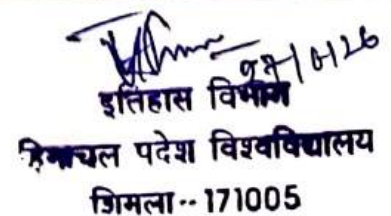 इतिहास विभाग
हिमाचल पदेश विश्वविद्यालय
शिमला--171005